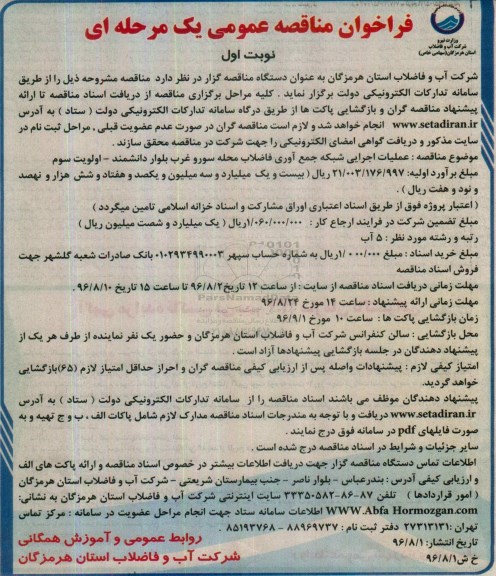 فراخوان مناقصه عمومی یک مرحله ای
وزارت نیرو
شرکت آب و فاضلاب
استان هرمزگان (سهامی خاص)
نوبت اول
شرکت آب و فاضلاب استان هرمزگان به عنوان دستگاه مناقصه گزار در نظر دارد مناقصه مشروحه ذیل را از طریق
سامانه تدارکات الکترونیکی دولت برگزار نماید . کلیه مراحل برگزاری مناقصه از دریافت اسناد مناقصه تا ارائه
پیشنهاد مناقصه گران و بازگشایی پاکت ها از طریق درگاه سامانه تدارکات الکترونیکی دولت ( ستاد ) به آدرس
www.setadiran.ir انجام خواهد شد و لازم است مناقصه گران در صورت عدم عضویت قبلی ، مراحل ثبت نام در
سایت مذکور و دریافت گواهی امضای الکترونیکی را جهت شرکت در مناقصه محقق سازند .
موضوع مناقصه : عملیات اجرایی شبکه جمع آوری فاضلاب محله سورو غرب بلوار دانشمند - اولویت سوم
مبلغ برآورد اولیه: ۲۱/۰۰۳/۱۷۶/۹۹۷ ریال ( بیست و یک میلیارد و سه میلیون و یکصد و هفتاد و شش هزار و نهصد
و نود و هفت ریال ) .
( اعتبار پروژه فوق از طریق اسناد اعتباری اوراق مشارکت و اسناد خزانه اسلامی تامین میگردد )
مبلغ تضمین شرکت در فرایند ارجاع کار : ۱/۰۶۰/۰۰۰/۰۰۰ ریال ( یک میلیارد و شصت میلیون ریال )
رتبه و رشته مورد نظر : ۵ آب
مبلغ خرید اسناد : مبلغ ۱/۰۰۰/۰۰۰ ریال به شماره حساب سپهر ۰۱۰۲۹۳۴۹۹۰۰۰۳ بانک صادرات شعبه گلشهر جهت
فروش اسناد مناقصه
مهلت زمانی دریافت اسناد مناقصه از سایت : از ساعت ۱۲ تاریخ ۹۶/۸/۲ تا ساعت ۱۵ تاریخ ۹۶/۸/۱۰ .
مهلت زمانی ارائه پیشنهاد : ساعت ۱۴ مورخ ۹۶/۸/۲۴
زمان بازگشایی پاکت ها : ساعت ۱۰ مورخ ۹۶/۹/۱
محل بازگشایی : سالن کنفرانس شرکت آب و فاضلاب استان هرمزگان و حضور یک نفر نماینده از طرف هر یک از
پیشنهاد دهندگان در جلسه بازگشایی پیشنهادها آزاد است .
امتیاز کیفی لازم : پیشنهادات واصله پس از ارزیابی کیفی مناقصه گران و احراز حداقل امتیاز لازم (۶۵) بازگشایی
خواهد گردید.
پیشنهاد دهندگان موظف می باشند اسناد مناقصه را از سامانه تدارکات الکترونیکی دولت ( ستاد ) به آدرس
www.setadiran.ir دریافت و با توجه به مندرجات اسناد مناقصه مدارک لازم شامل پاکات الف ، ب و ج تهیه و به
صورت فایلهای pdf در سامانه فوق درج نمایند .
سایر جزئیات و شرایط در اسناد مناقصه درج شده است .
اطلاعات تماس دستگاه مناقصه گزار جهت دریافت اطلاعات بیشتر در خصوص اسناد مناقصه و ارائه پاکت های الف
و ارزیابی کیفی آدرس : بندرعباس - بلوار ناصر - جنب بیمارستان شریعتی - شرکت آب و فاضلاب استان هرمزگان
( امور قراردادها ) تلفن ۸۷-۸۶-۳۳۳۵۰۵۸۲ سایت اینترنتی شرکت آب و فاضلاب استان هرمزگان به نشانی:
WWW.Abfa Hormozgan.com اطلاعات سامانه ستاد جهت انجام مراحل عضویت در سامانه : مرکز تماس
تهران : ۲۷۳۱۳۱۳۱ دفتر ثبت نام : ۸۸۹۶۹۷۳۷ - ۸۵۱۹۳۷۶۸ .
تاریخ انتشار: ۹۶/۸/۱
خ ش ۹۶/۸/۱
روابط عمومی و آموزش همگانی
شرکت آب و فاضلاب استان هرمزگان